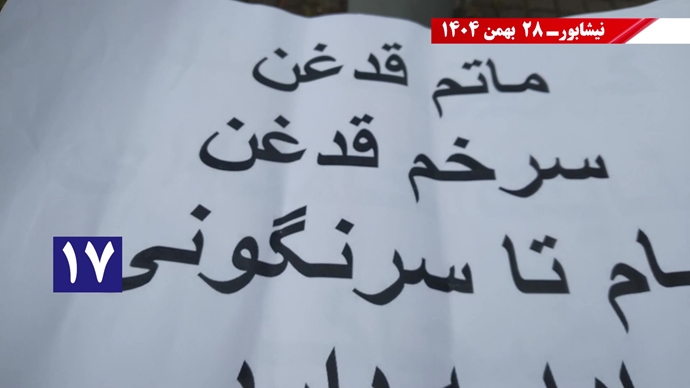 نیشابور ــ ۲۸ بهمن ۱۴۰۴
ماتم قدغن
سرخم قدغن
تا سرنگونی
۱۷